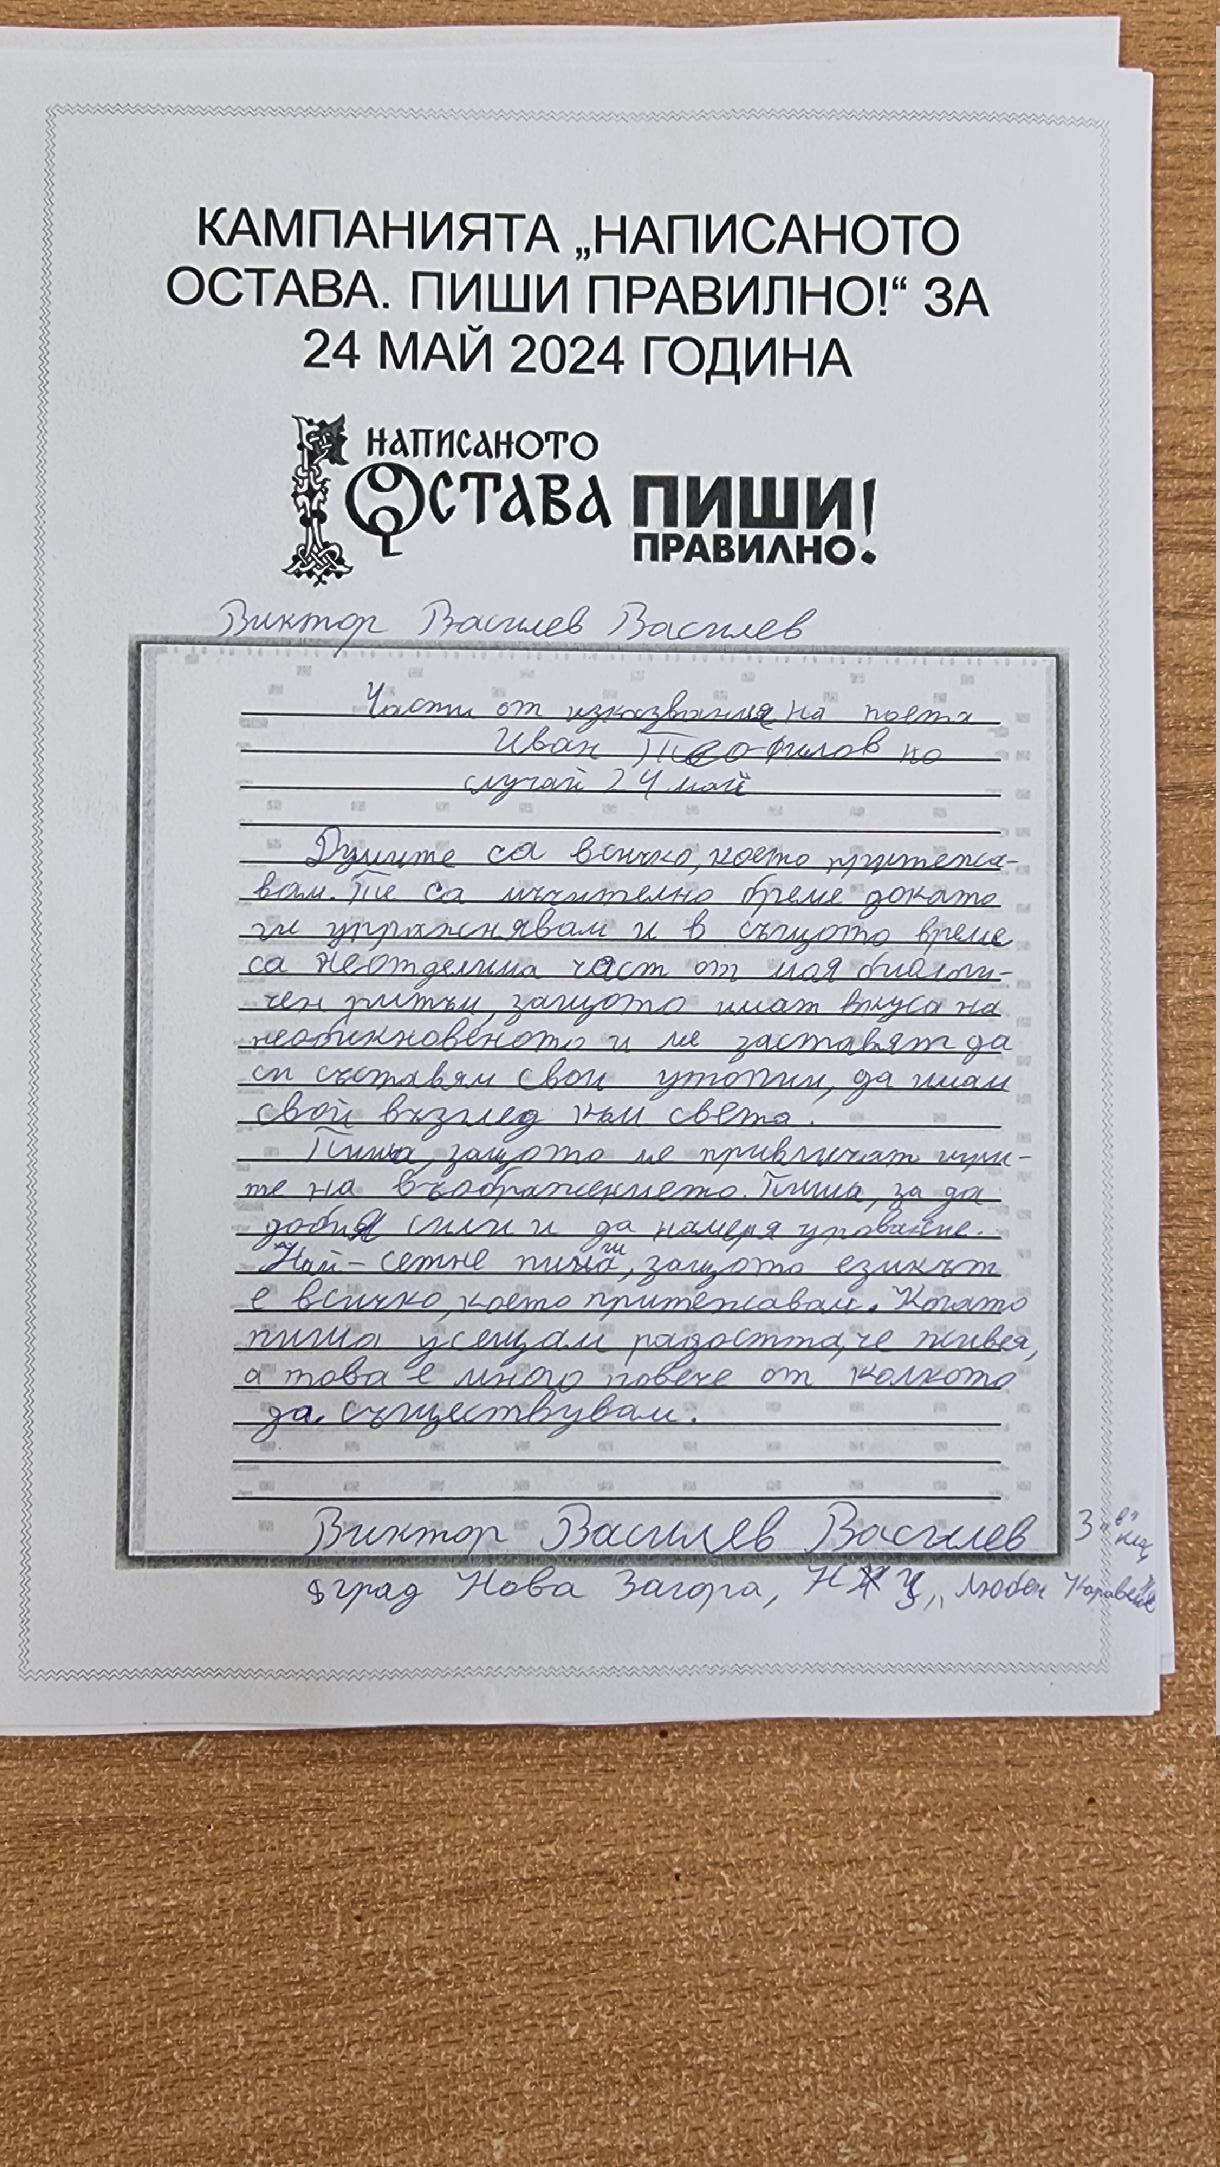 КАМПАНИЯТА „НАПИСАНОТО
ОСТАВА. ПИШИ ПРАВИЛНО!“ ЗА
24 МАЙ 2024 ГОДИНА
НАПИСАНОТО
ОСТАВА ПИШИ!
ПРАВИЛНО
Виктор Василев Василев
Части от изказвания на поета
Иван Теофилов по
случай 24 май
Думите са всичко, което притежа-
вам. Те са мъчително бреме докато
ги упражнявам и в същото време
са неотделима част от моя биологи-
чен ритъм, защото имат вкуса на
необикновеното и ме заставят да
си съставям свои утопии, да имам
свой възглед към света.
Пиша, защото ме привличат игри-
те на въображението. Пиша, за да
добия сили и да намеря упование.
Най-сетне пиша, защото езикът
е всичко, което притежавам. Когато
пиша усещам радостта, че живея,
а това е много повече от колкото
да съществувам.
Виктор Василев Василев 3 "в"
клас
град Нова Загора, Н У „Любен Каравелов"